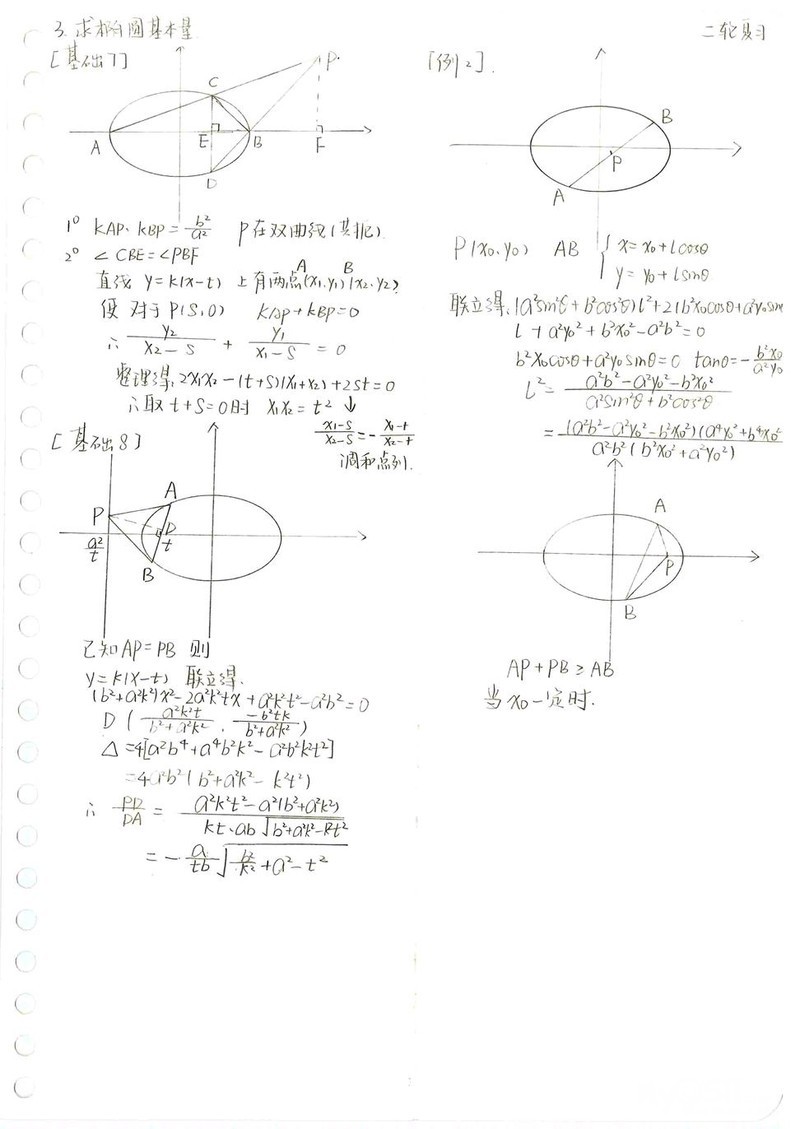 3. 求椭圆基本量
二轮复习
[基础7]
P
C
A
E
B
F
D
1° kAP·kBP = b²/a² P在双曲线(共轭)
2° ∠CBE=∠PBF
A B
直线 y=k(x-t) 上有两点(x₁,y₁)(x₂,y₂)
使 对于P(S,0) kAP+kBP=0
∴ y₂/(x₂-S) + y₁/(x₁-S) = 0
整理得, 2x₁x₂-(t+S)(x₁+x₂)+2St=0
∴取 t+S=0时 x₁x₂=t² ↓
(x₁-S)/(x₂-S) = -(x₁-t)/(x₂-t)
调和点列.
[基础8]
A
P
D
a²/t
t
B
已知AP=PB 则
y=k(x-t) 联立得.
(b²+a²k²)x²-2a²k²tx+a²k²t²-a²b²=0
D (a²k²t/(b²+a²k²), -b²tk/(b²+a²k²))
Δ=4[a²b⁴+a⁴b²k²-a²b²k²t²]
=4a²b²(b²+a²k²-k²t²)
∴ PD/DA = (a²k²t²-a²(b²+a²k²))/(kt·ab√(b²+a²k²-k²t²))
= -a/(tb) √(b²/k²+a²-t²)
[例2].
B
P
A
P(x₀,y₀) AB { x=x₀+lcosθ
y=y₀+lsinθ
联立得, (a²sin²θ+b²cos²θ)l²+2(b²x₀cosθ+a²y₀sinθ
l+a²y₀²+b²x₀²-a²b²=0
b²x₀cosθ+a²y₀sinθ=0 tanθ=-b²x₀/a²y₀
l²= (a²b²-a²y₀²-b²x₀²)/(a²sin²θ+b²cos²θ)
= (a²b²-a²y₀²-b²x₀²)(a⁴y₀²+b⁴x₀²/a²b²(b²x₀²+a²y₀²)
A
P
B
AP+PB≥AB
当x₀一定时.